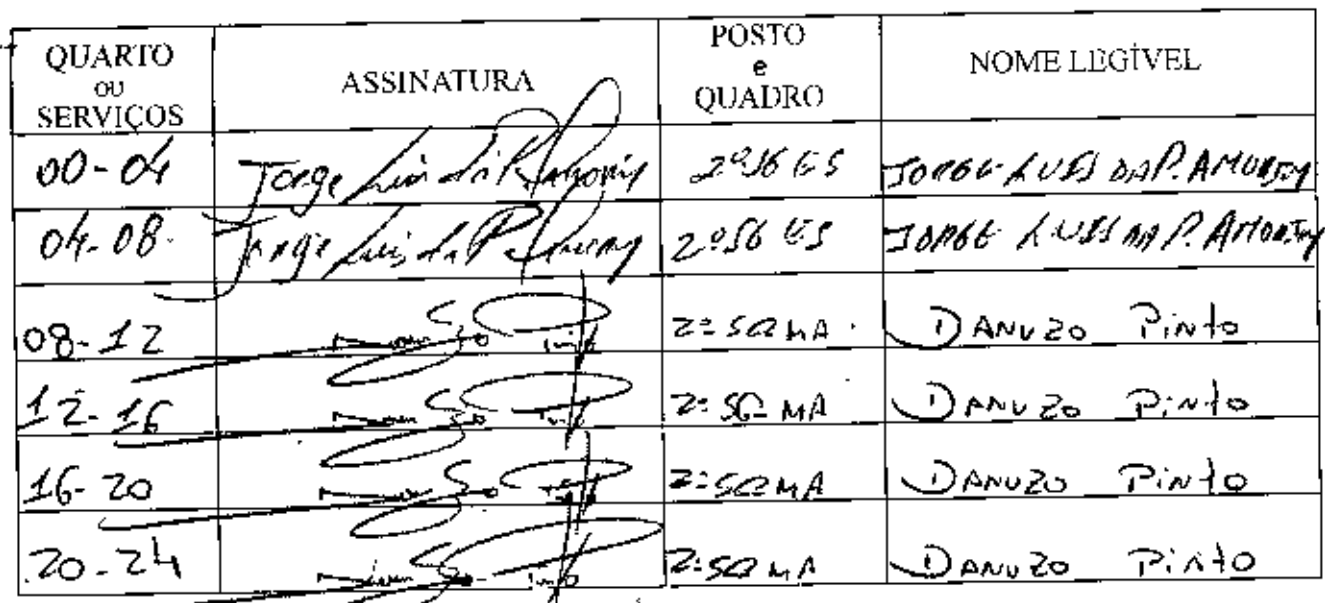 QUARTO OU SERVIÇOS ASSINATURA POSTO e QUADRO NOME LEGÍVEL
00-04 Jorge Luis da P. Amorim 2º SG ES JORGE LUIS DA P. AMORIM
04-08 Jorge Luis da P. Amorim 2º SG ES JORGE LUIS DA P. AMORIM
08-12 2º SG MA DANUZO Pinto
12-16 2º SG MA DANUZO Pinto
16-20 2º SG MA DANUZO Pinto
20-24 2º SG MA DANUZO Pinto